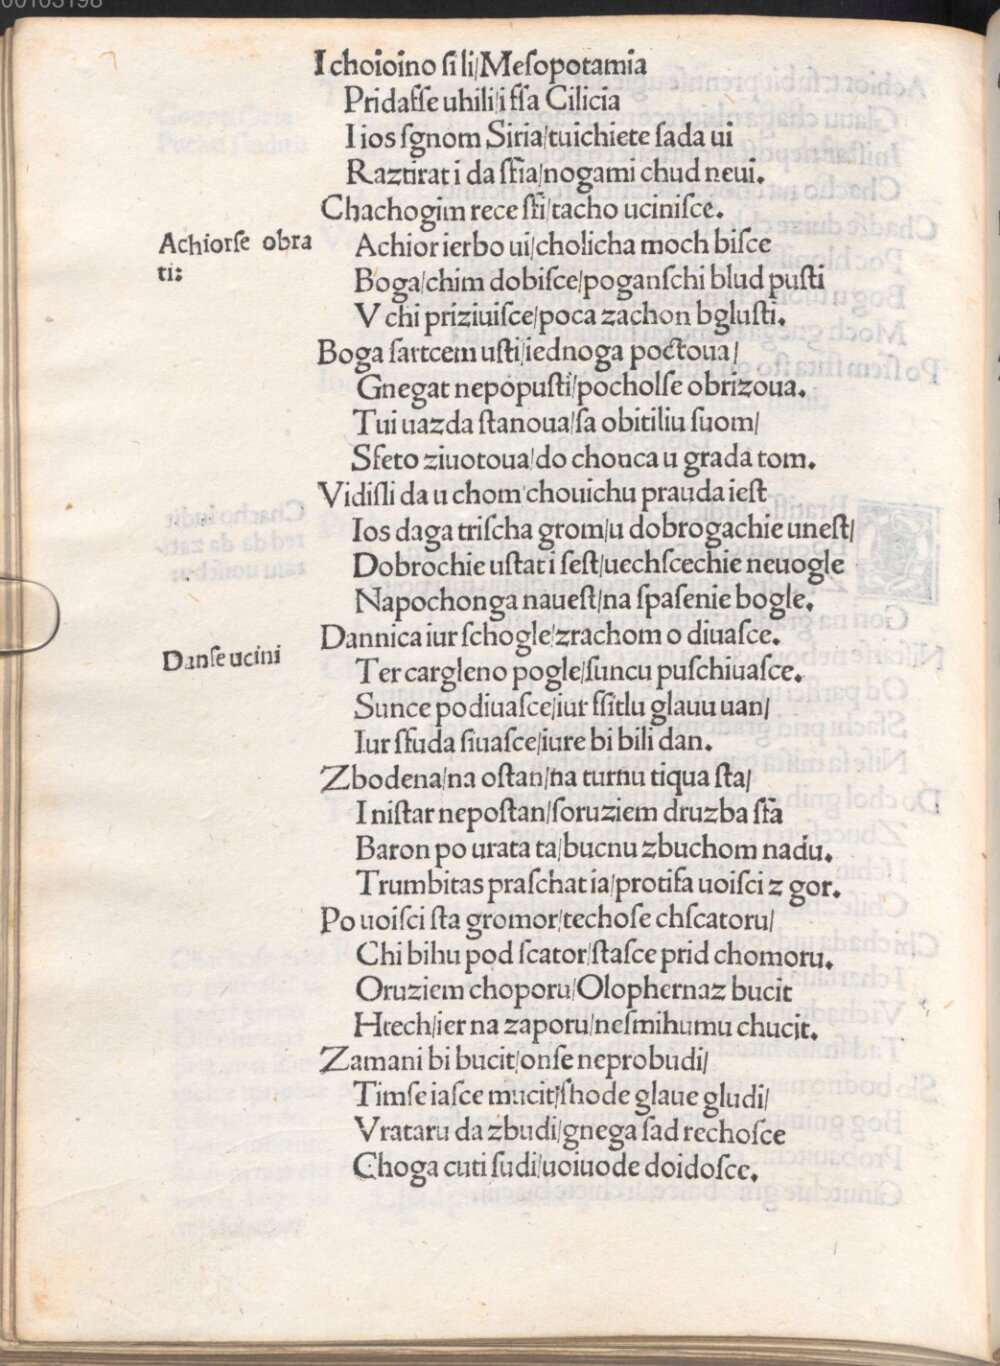 00103198
I choioino ſi li/Meſopotamia
Pridaſſe uhili/i ſſa Cilicia
I ios ſgnom Siria/tuichiete ſada ui
Raztirat i da ſſia/nogami chud neui.
Chachogim rece ſſi/tacho uciniſce.
Achiorſe obra
ti:
Achior ierbo ui/cholicha moch biſce
Boga/chim dobiſce/poganſchi blud puſti
V chi priziuiſce/poca zachon bgluſti.
Boga ſartcem uſti/iednoga poctoua/
Gnegat nepopuſti/pocholſe obrizoua.
Tui uazda ſtanoua/ſa obitiliu ſuom/
Sfeto ziuotoua/do chonca u grada tom.
Vidiſli da u chom chouichu prauda ieſt
Ios daga triſcha grom/u dobrogachie uneſt/
Dobrochie uſtat i ſeſt/uechſcechie neuogle
Napochonga naueſt/na ſpaſenie bogle.
Dannica iur ſchogle/zrachom o diuaſce.
Danſe ucini
Ter cargleno pogle/ſuncu puſchiuaſce.
Sunce podiuaſce/iur ſſitlu glauu uan/
Iur ſſuda ſiuaſce/iure bi bili dan.
Zbodena/na oſtan/na turnu tiqua ſta/
I niſtar nepoſtan/ſoruziem druzba ſſa
Baron po urata ta/bucnu zbuchom nadu.
Trumbitas praſchat ia/protiſa uoiſci z gor.
Po uoiſci ſta gromor/techoſe chſcatoru/
Chi bihu pod ſcator/ſtaſce prid chomoru.
Oruziem choporu/Olophernaz bucit
Htech/ier na zaporu/neſmihumu chucit.
Zamani bi bucit/onſe neprobudi/
Timſe iaſce mucit/ſhode glaue gludi/
Vrataru da zbudi/gnega ſad rechoſce
Choga cuti ſudi/uoiuode doidoſce.